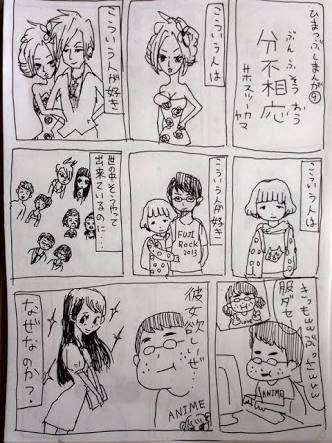 ひまつぶしまんが④
ぶんふそうおう
分不相応
#ホスツーヤカマ
こういう人は
こういう人が好き
こういう人は
こういう人が好き
FUJI
Rock
2013
世の中そうやって
出来ているのに…
きっもwwぶっさwww
服ダセ
ANIME
彼女欲しいぜ…
ANIME
なぜなのか?